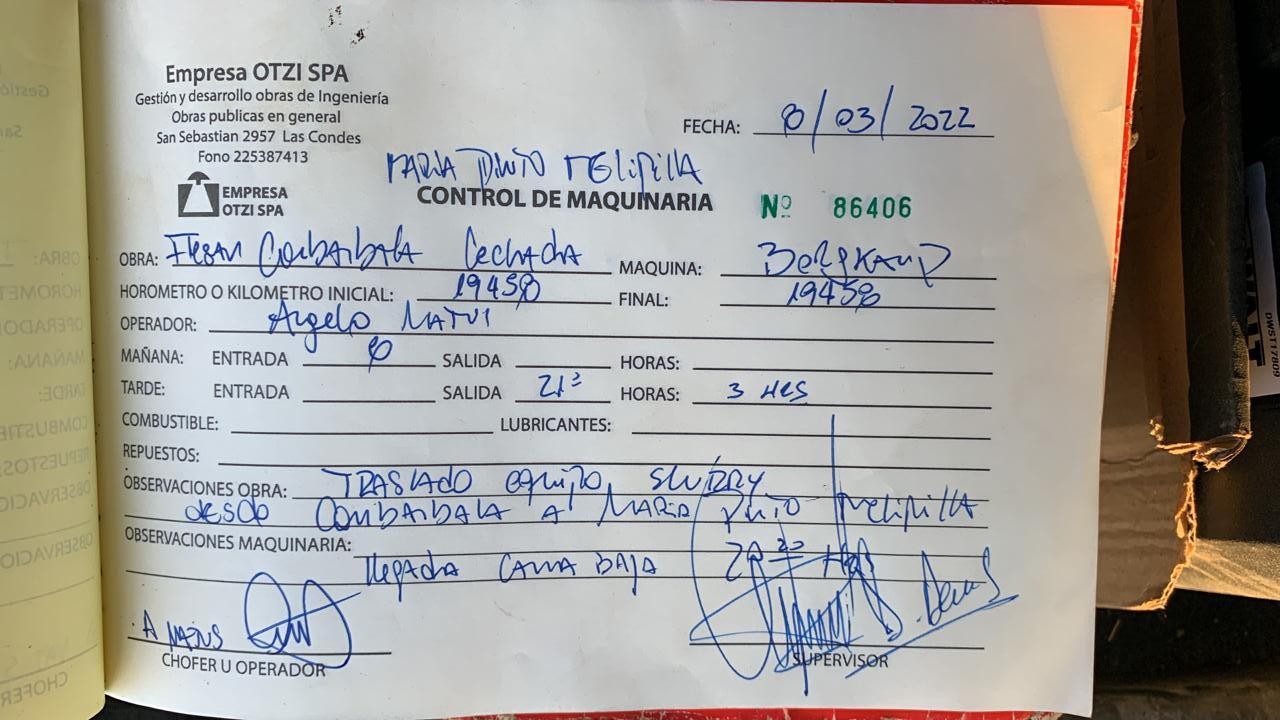 Empresa OTZI SPA
Gestión y desarrollo obras de Ingeniería
Obras publicas en general
San Sebastian 2957 Las Condes
Fono 225387413
EMPRESA
OTZI SPA
FECHA: 8/03/2022
MARIA PINTO MELIPILLA
CONTROL DE MAQUINARIA Nº 86406
OBRA: Combarbala MAQUINA: Bergkamp
HOROMETRO O KILOMETRO INICIAL: 19458 FINAL: 19458
OPERADOR: Angelo
MAÑANA: ENTRADA 8 SALIDA HORAS:
TARDE: ENTRADA SALIDA 21 HORAS: 3 HRS
COMBUSTIBLE: LUBRICANTES:
REPUESTOS:
OBSERVACIONES OBRA: TRASLADO equipo SLURRY
desde Combarbala A MARIA PINTO Melipilla
OBSERVACIONES MAQUINARIA:
llegada CAMA BAJA HRS
A
CHOFER U OPERADOR
SUPERVISOR
DWST17809